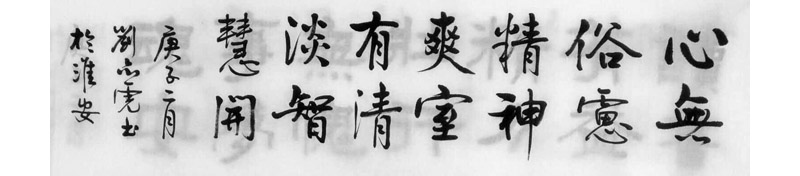 心無
俗慮
精神
爽室
有清
淡智
慧開
庚子二月
劉虎书
於淮安